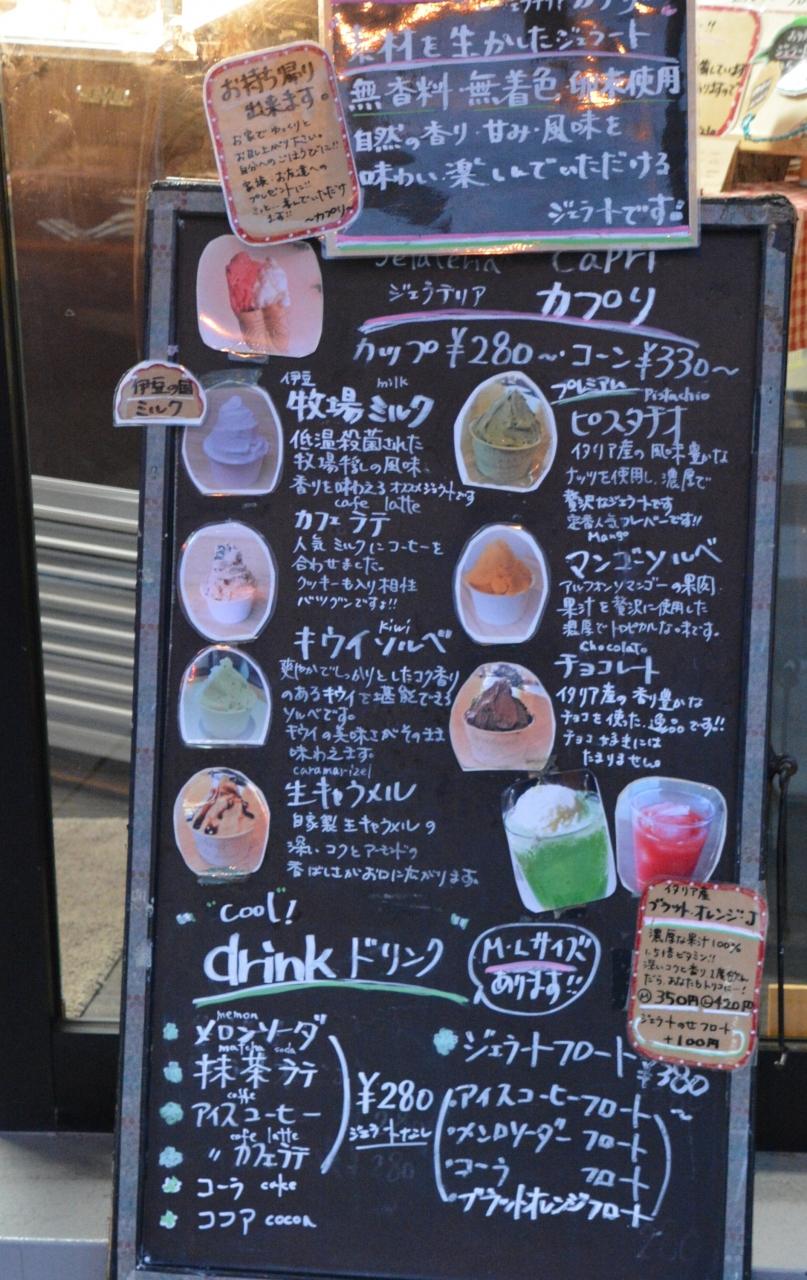 素材を生かしたジェラート
無香料・無着色・卵未使用
自然の香り・甘み・風味を
味わい、楽しんでいただける
ジェラートです!!
お持ち帰り
出来ます。
お家でゆっくりと
お召し上がり下さい。
自分へのごほうびに!!
家族・お友達への
プレゼントに!!
きっと喜んでいただけ
ます!!
〜カプリ〜
Gelateria Capri
ジェラテリア カプリ
カップ¥280〜・コーン¥330〜
伊豆の国
ミルク
伊豆 milk
牧場ミルク
低温殺菌された
牧場搾しの風味
香りを味わえるオススメジェラートです
cafe latte
カフェラテ
人気ミルクにコーヒーを
合わせました。
クッキーも入り相性
バツグンですよ!!
Kiwi
キウイソルベ
爽やかでしっかりとしたコク香り
のあるキウイを堪能できる
ソルベです。
キウイの美味さがそのまま
味わえます。
caramarizel
生キャラメル
自家製生キャラメルの
深いコクとアーモンドの
香ばしさがお口に広がります。
プレミアム Pistachio
ピスタチオ
イタリア産の風味豊かな
ナッツを使用し、濃厚で
贅沢なジェラートです
定番人気フレーバーです!!
Mango
マンゴーソルベ
アルフォンソマンゴーの果肉
果汁を贅沢に使用した
濃厚でトロピカルな味です。
Chocolato
チョコレート
イタリア産の香り豊かな
チョコを使た逸品です!!
チョコ好きには
たまりません。
"cool!"
drink ドリンク
M・Lサイズ
あります!!
イタリア産
ブラット・オレンジ・J
濃厚な果汁100%
1.5倍ビタミン!!
深いコクと香り1度飲ん
だら、あなたもトリコに…!
Ⓜ350円Ⓛ420円
ジェラートのせフロート
+100円
memon
メロンソーダ
matcha soda
抹茶ラテ
caffe
アイスコーヒー
cafe latte
〃 カフェラテ
コーラ cake
ココア cocoa
¥280
ジェラートなし
ジェラートフロート
¥380〜
アイスコーヒーフロート
メンロソーダーフロート
コーラ フロート
ブラットオレンジフロート